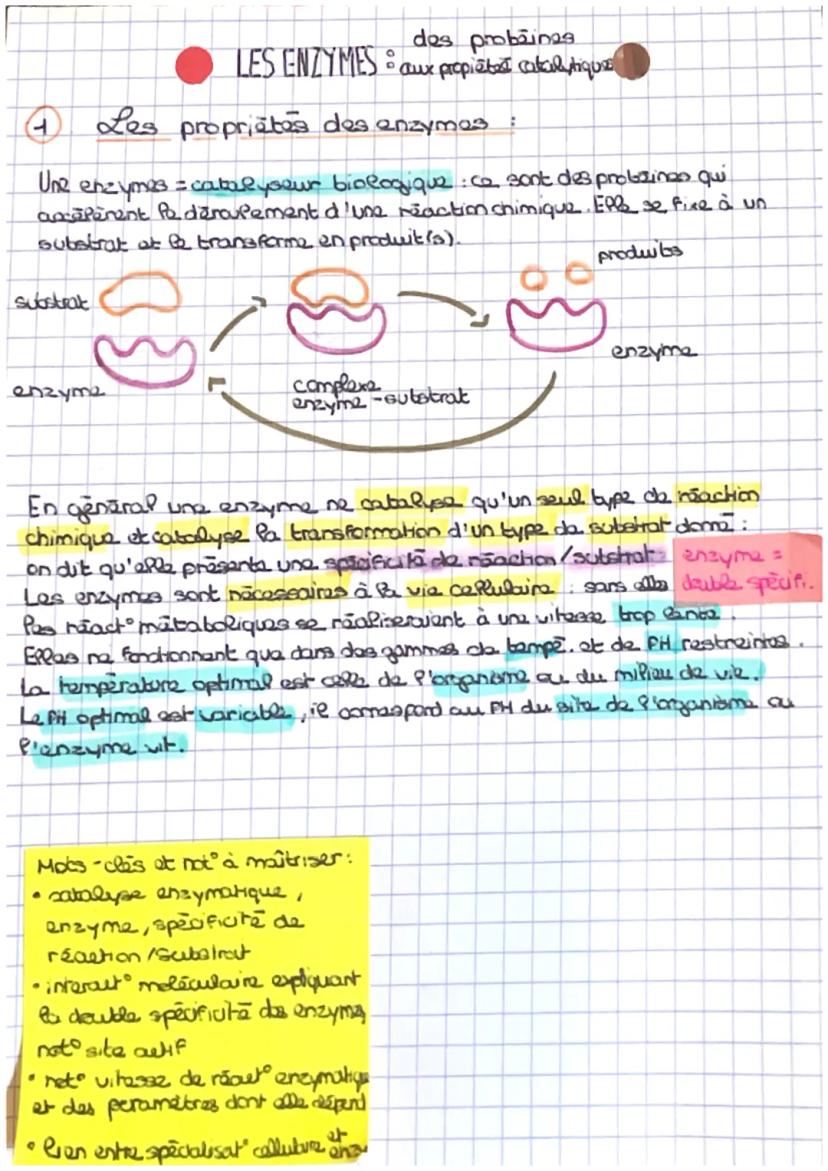 des protéines
LES ENZYMES : aux propiétés catalytiques
1 Les propriétés des enzymes :
Une enzymes = catalyseur biologique : ce sont des protéines qui
accélèrent le déroulement d'une réaction chimique. Elle se fixe à un
substrat et le transforme en produit(s).
produits
substrat
enzyme
enzyme
complexe
enzyme-substrat
En général une enzyme ne catalyse qu'un seul type de réaction
chimique et catalyse la transformation d'un type de substrat donné :
on dit qu'elle présente une spécificité de réaction/substrat. enzyme =
Les enzymes sont nécessaires à la vie cellulaire : sans elles double spécifi.
les réact° métaboliques se réaliseraient à une vitesse trop lente.
Elles ne fonctionnent que dans des gammes de tempé. et de PH restreintes.
La température optimal est celle de l'organisme ou du milieu de vie.
Le PH optimal est variable, il correspond au PH du site de l'organisme ou
l'enzyme vit.
Mots-clés et not° à maîtriser :
• catalyse enzymatique,
enzyme, spécificité de
réaction/substrat
• interact° moléculaire expliquant
la double spécificité des enzymes
not° site actif
• not° vitesse de réact° enzymatique
et des paramètres dont elle dépend
• lien entre spécialisat° cellulaire et
enzy